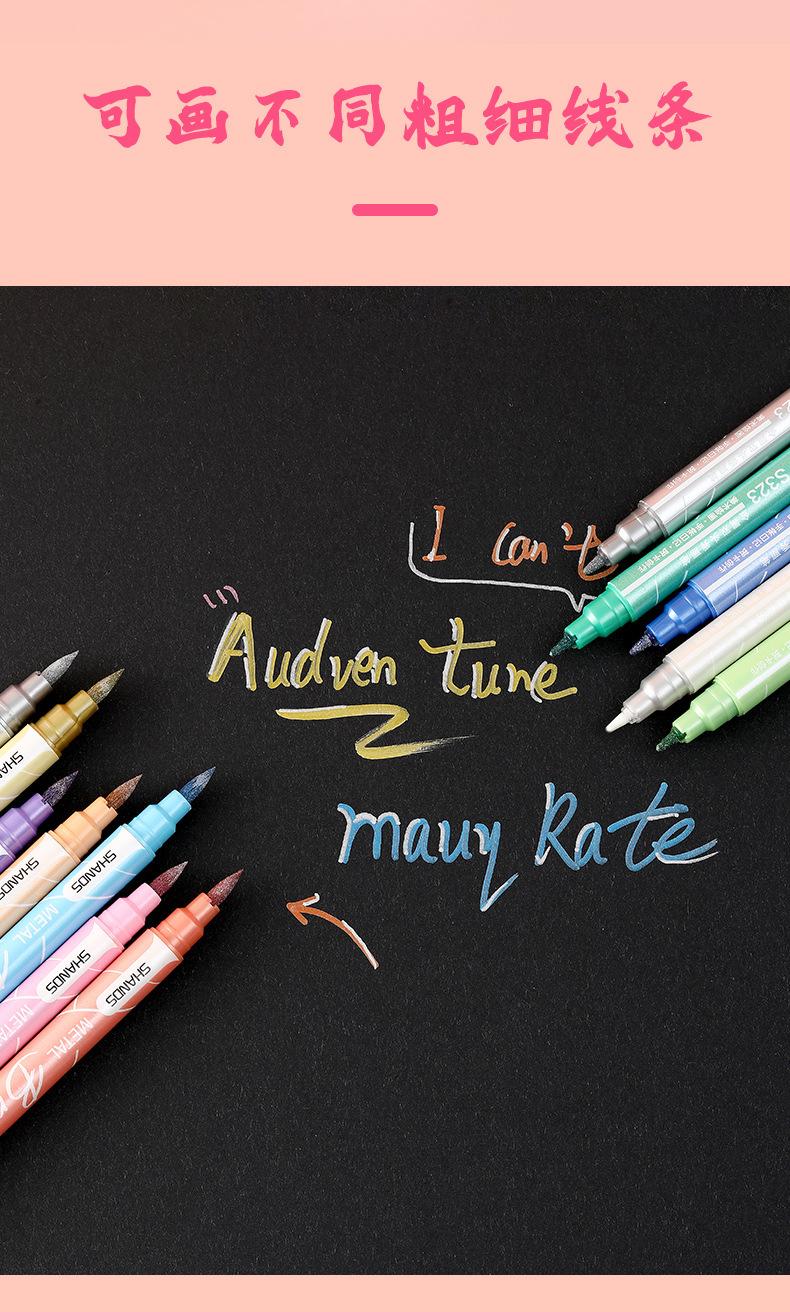 可画不同粗细线条
I can't
Audven tune
mauy Rate
S323
SHANDS
METAL
SHANDS
METAL
SHANDS
METAL
SHANDS